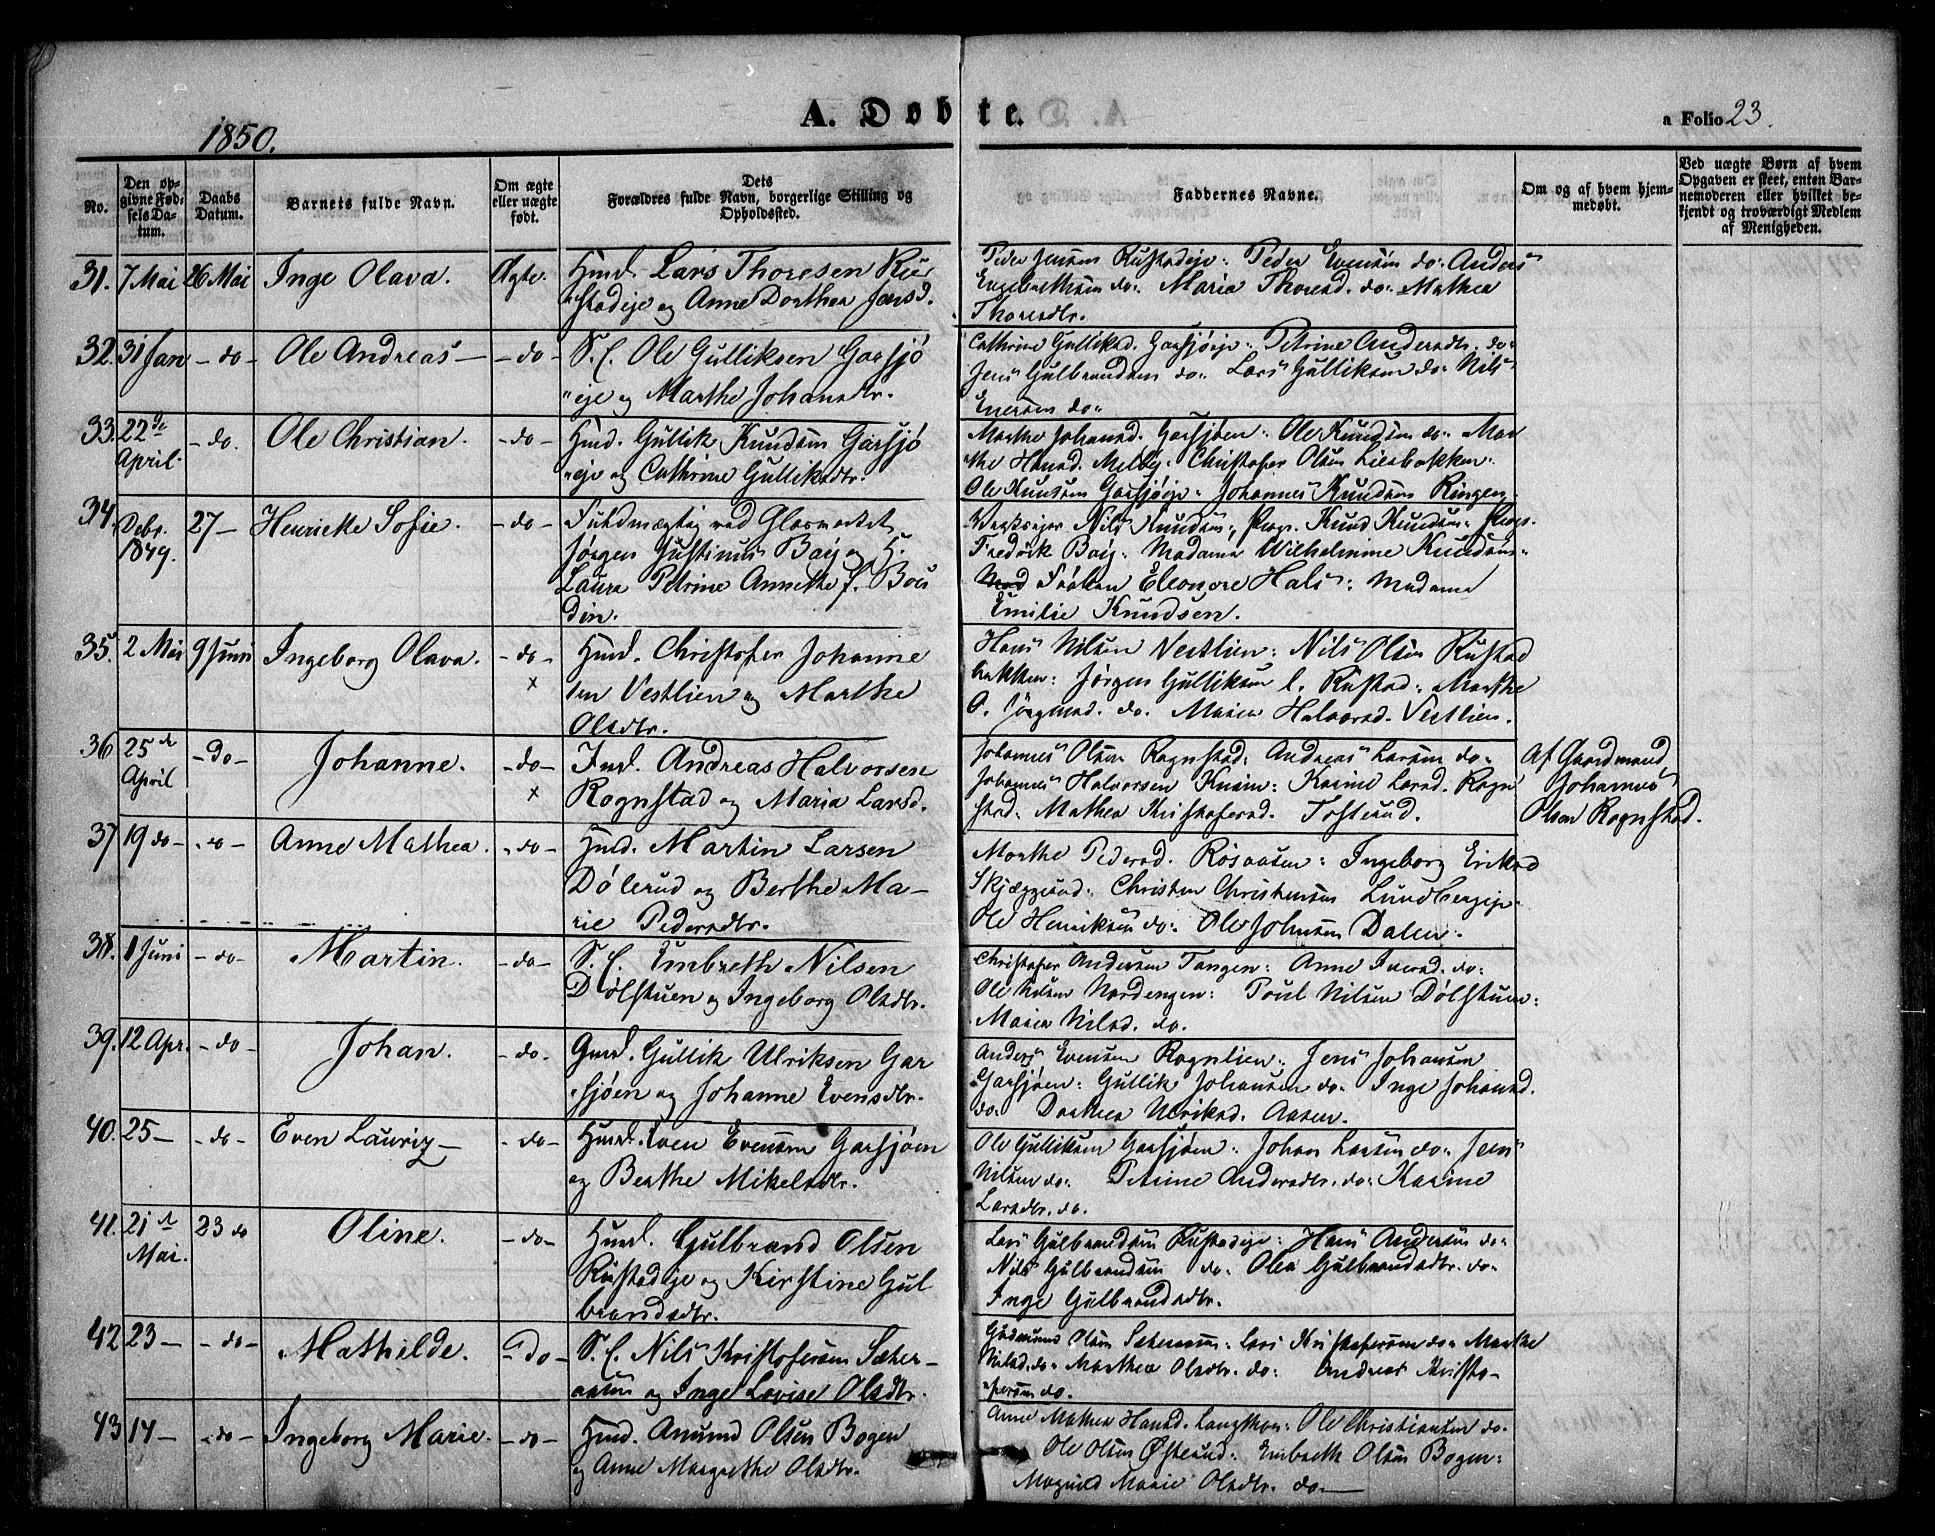 1850.
A. Døbte.
a Folio 23.
No.
Den op-
givne Fød-
sels Da-
tum.
Daabs
Datum.
Barnets fulde Navn.
Om ægte
eller uægte
født.
Dets
Forældres fulde Navn, borgerlige Stilling og
Opholdssted.
Faddernes Navne.
Om og af hvem hjem-
medøbt.
Ved uægte Børn af hvem
Opgaven er skeet, enten Bar-
nemoderen eller hvilket be-
kjendt og troværdigt Medlem
af Menigheden.
31. 7 Mai 26 Mai Inge Olava. Ægte.
Hmd. Lars Thoresen Ru-
stadeje og Anne Dorthea Jensd.
Peder Jensen Rustadeje: Peder Evensen do: Anders
Engebrethsen do: Maria Thoresd. do: Mathea
Thoresdtr.
32. 31 Jan - do - Ole Andreas - - do -
S. C. Ole Gulliksen Garsjø
"eje og Marthe Johansdtr.
Cathrine Gulliksd. Garsjøeje: Petrine Andersdtr. do:
Jens Gulbrandsen do: Lars Gulliksen do: Nils
Enersen do:
33. 22de April - do. Ole Christian. - do -
Hmd. Gullik Knudsen Garsjø
"eje og Cathrine Gulliksdtr.
Marthe Johansd. Garsjøen: Ole Knudsen do: Mar
the Hansd. Melby: Christofer Olsen Liesbakken:
Ole Knudsen Garsjøeje: Johannes Knudsen Ringen.
34. Debr. 1849. 27 - Henriette Sofie. - do -
Fuldmægtig ved Glasværket
Jørgen Justinus Boij og H.
Laura Petrine Annette f. Bou
din.
Nils Knudsen: Knud Knudsen:
Fredrik Boij: Madame Wilhelmine Knudsen:
Frøken Eleonore Hals: Madame
Emilie Knudsen.
35. 2 Mai 9 Juni Ingeborg Olava. - do - x
Hmd. Christofer Johanne
sen Vestlien og Marthe
Olsdtr.
Hans Nilsen Vestlien: Nils Olsen Rustad
bakken: Jørgen Gulliksen l. Rustad: Marthe
O. Jørgensd. do. Maria Halvorsd. Vestlien.
36 25de April - do - Johanne. - do - x
Ind. Andreas Halvorsen
Rognstad og Maria Larsd.
Johannes Olsen Rognstad: Andreas Larsen do:
Johannes Halvorsen Karine Larsd. Rogn
stad: Mathea Kristofersd. Tosterud.
Af Gaardmand
Johannes
Olsen Rognstad.
37 19 do - - do - Anne Mathea. - do -
Hmd. Martin Larsen
Dølerud og Berthe Ma-
rie Pedersdtr.
Marthe Pedersd. Røsaasen: Ingeborg Eriksd
Skjæggerud: Christen Christensen Lundbergeje:
Ole Henriksen do: Ole Johnsen Dalen.
38. 1 Juni - do - Martin. - do -
S. C. Embreth Nilsen
Dølstuen og Ingeborg Olsdtr.
Christofer Andersen Tangen: Anne Iversd. do:
Ole Nilsen Nordengen: Poul Nilsen Dølstuen:
Maria Nilsd. do.
39. 12 Apr. - do - Johan. - do.
Gmd. Gullik Ulriksen Gar
"sjøen og Johanne Evensdtr.
Anders Evensen Rognlien: Jens Johansen
Garsjøen: Gullik Johansen do: Inge Johansd.
do: Dorthea Ulriksd. Aasen.
40. 25 - - do - Even Lauritz - - do -
Hmd. Even Evensen Garsjøen
og Berthe Mikelsdtr.
Ole Gulliksen Garsjøen: Johan Larsen do: Jens
Nilsen do: Petrine Andersdtr. do: Karine
Larsdtr. do.
41. 21de Mai. 23 do Oline. - do -
Hmd. Gulbrand Olsen
Rustadeje og Kirstine Gul
brandsdtr.
Lars Gulbrandsen Rustadeje: Hans Andersen do:
Nils Gulbrandsen do: Olea Gulbrandsdtr. do:
Inge Gulbrandsdtr.
42 23 - - do - Mathilde. - do -
S. C. Nils Kristofersen Sæter-
aasen og Inge Lovise Olsdtr.
Gudmund Olsen Sæteraasen: Lars Kristofersen do: Marthe
Nilsd. do: Marthea Olsdtr. do: Andreas Kristo-
"fersen do.
43 14 - - do - Ingeborg Marie. - do -
Hmd. Amund Olsen Bogen
og Anne Margrethe Olsdtr.
Anne Mathea Hansd. Ole Christiansen do.
Ole Olsen Østerud: Embreth Olsen Bogen:
Magnild Marie Olsdtr. do -